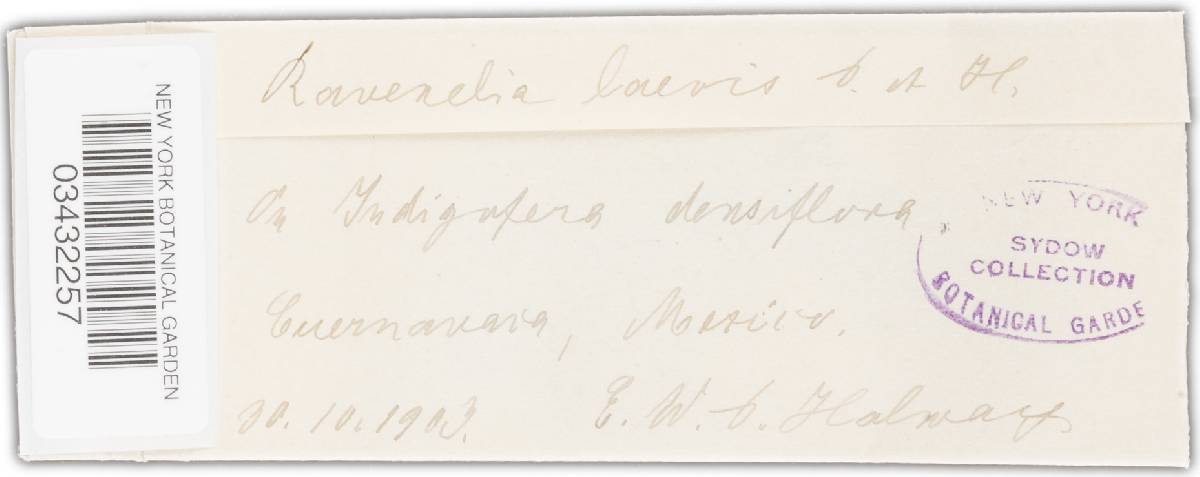 NEW YORK BOTANICAL GARDEN
03432257
Ravenelia laevis D. et H.
On Indigofera densiflora
Cuernavaca, Mexico.
30.10.1903. E. W. D. Holway
NEW YORK
SYDOW
COLLECTION
BOTANICAL GARDE